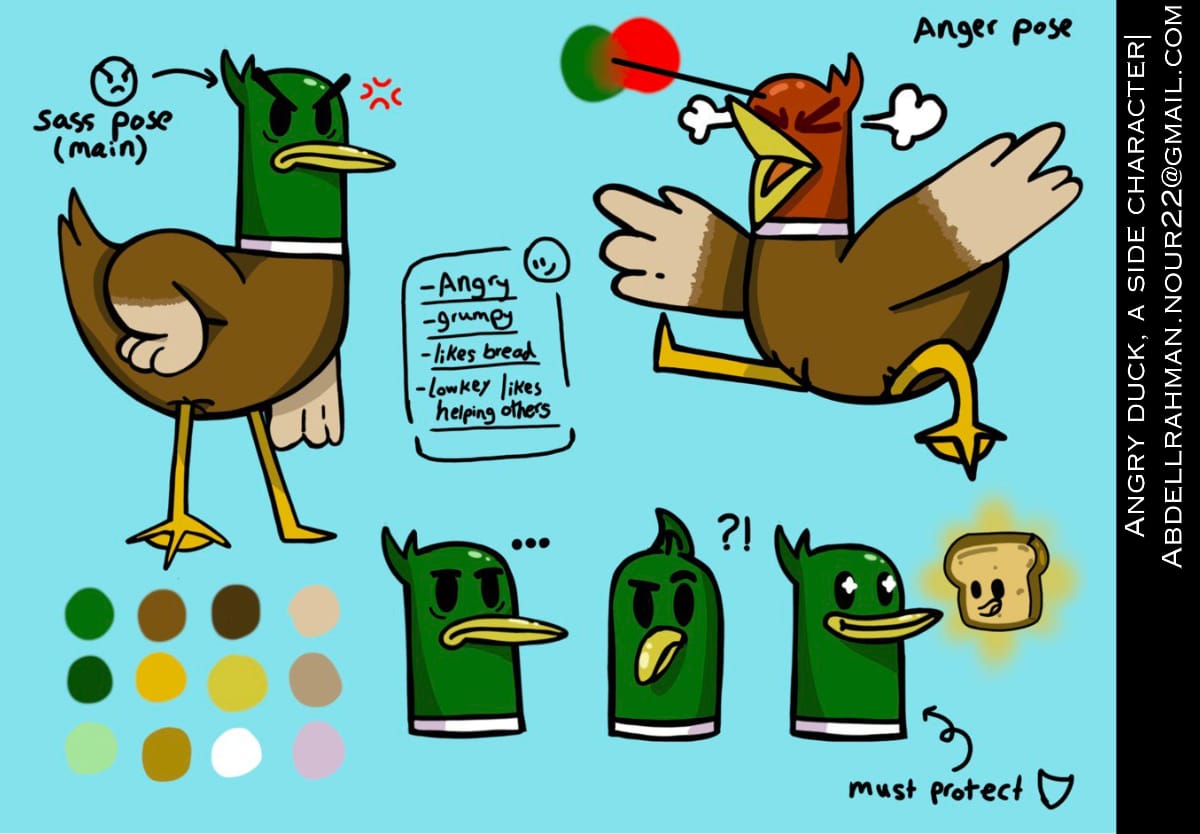 sass pose
(main)
Anger pose
-Angry
-grumpy
-likes bread
-lowkey likes
helping others
...
?!
must protect
Angry duck, a side character|
Abdellrahman.nour22@gmail.com